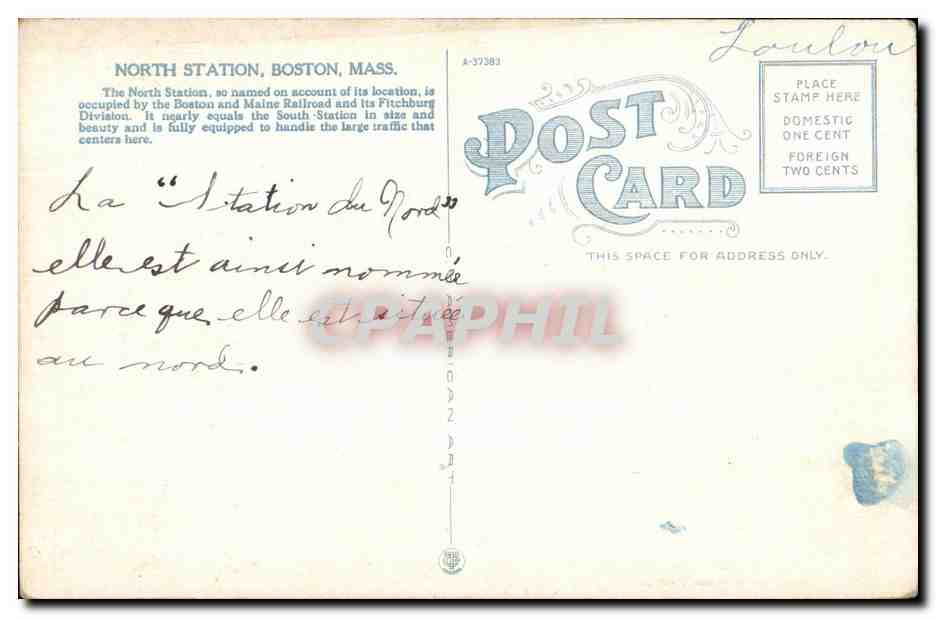 NORTH STATION, BOSTON, MASS.
The North Station, so named on account of its location, is
occupied by the Boston and Maine Railroad and its Fitchburg
Division. It nearly equals the South Station in size and
beauty and is fully equipped to handle the large traffic that
centers here.
La "Station du Nord"
elle est ainsi nommée
parce que elle est située
au nord.
A-37383
POST
CARD
THIS SPACE FOR ADDRESS ONLY.
Loulou
PLACE
STAMP HERE
DOMESTIC
ONE CENT
FOREIGN
TWO CENTS
CPAPHIL